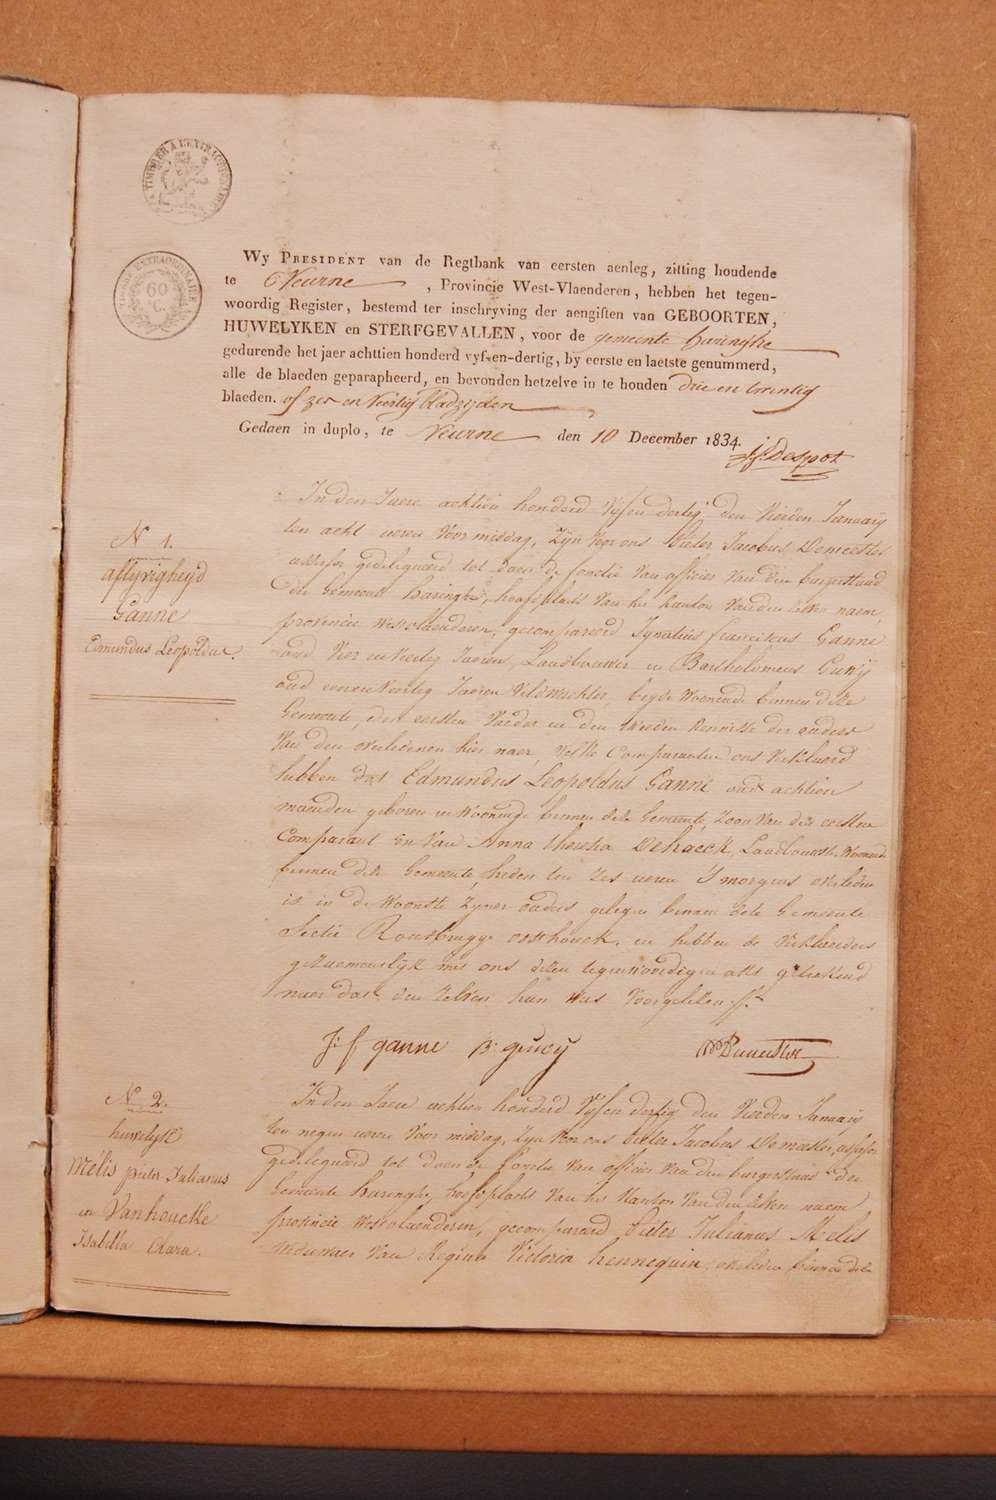 TIMBRE EXTRAORDINAIRE
60
C.
Wy PRESIDENT van de Regtbank van eersten aenleg, zitting houdende
te Veurne, Provincie West-Vlaenderen, hebben het tegen-
woordig Register, bestemd ter inschryving der aengiften van GEBOORTEN,
HUWELYKEN en STERFGEVALLEN, voor de gemeente haringhe
gedurende het jaer achttien honderd vyf-en-dertig, by eerste en laetste genummerd,
alle de blaeden geparapheerd, en bevonden hetzelve in te houden drie en twintig
blaeden. of zes en veertig bladzyden
Gedaen in duplo, te Veurne den 10 December 1834.
Despot
N 1.
aflyvigheyd
Ganne
Edmundus Leopoldus.
In den Jaere achtien honderd Vyf en dertig den Vierden January
ten acht uren voor middag, Zyn voor ons Pieter Jacobus Demeester
assessor gedelegueerd tot doen de functie van officier van den burgerstand
der Gemeente haringhe, hoofdplaets van het kanton van den zelven naem,
provincie westvlaenderen, gecompareerd Ignatius franciscus Ganne
oud Vier en Veertig Jaeren, Landbouwer en Bartholomeus Geucÿ
oud eenenveertig Jaeren Veldwachter, beyde Woonende binnen deze
Gemeente, den eersten Vaeder en den tweeden kennisse der ouders
Van den overledenen hier naer, welke Comparanten ons verklaerd
hebben dat Edmundus Leopoldus Ganne oud achtien
maenden geboren en Woonende binnen deze Gemeente, Zoon van den eersten
Comparant en van Anna theresia Dehaeck, Landbouwster, Woonende
binnen deze Gemeente, heden ten zes uren 's morgens overleden
is in de Woonste Zyner ouders gelegen binnen deze Gemeente
Sectie Rousbrugge oosthoeck, en hebben de Verklaerders
gezaemenlyk met ons dezen tegenwoordigen akt geteekend
naer dat den zelven hun was voorgelezen
J: f ganne B: geucÿ Demeester
N 2.
huwelyk
Melis pieter Julianus
en
Vanhoucke
Isabella Clara.
In den Jaere achtien honderd Vyf en dertig den Vierden January
ten negen uren voor middag, Zyn voor ons Pieter Jacobus Demeester, assessor
gedelegueerd tot doen de functie van officier van den burgerstand der
Gemeente haringhe, hoofdplaets van het kanton van den zelven naem
provincie Westvlaenderen, gecompareerd Pieter Julianus Melis
weduwaer van Regina Victoria hennequin, overleden binnen deze